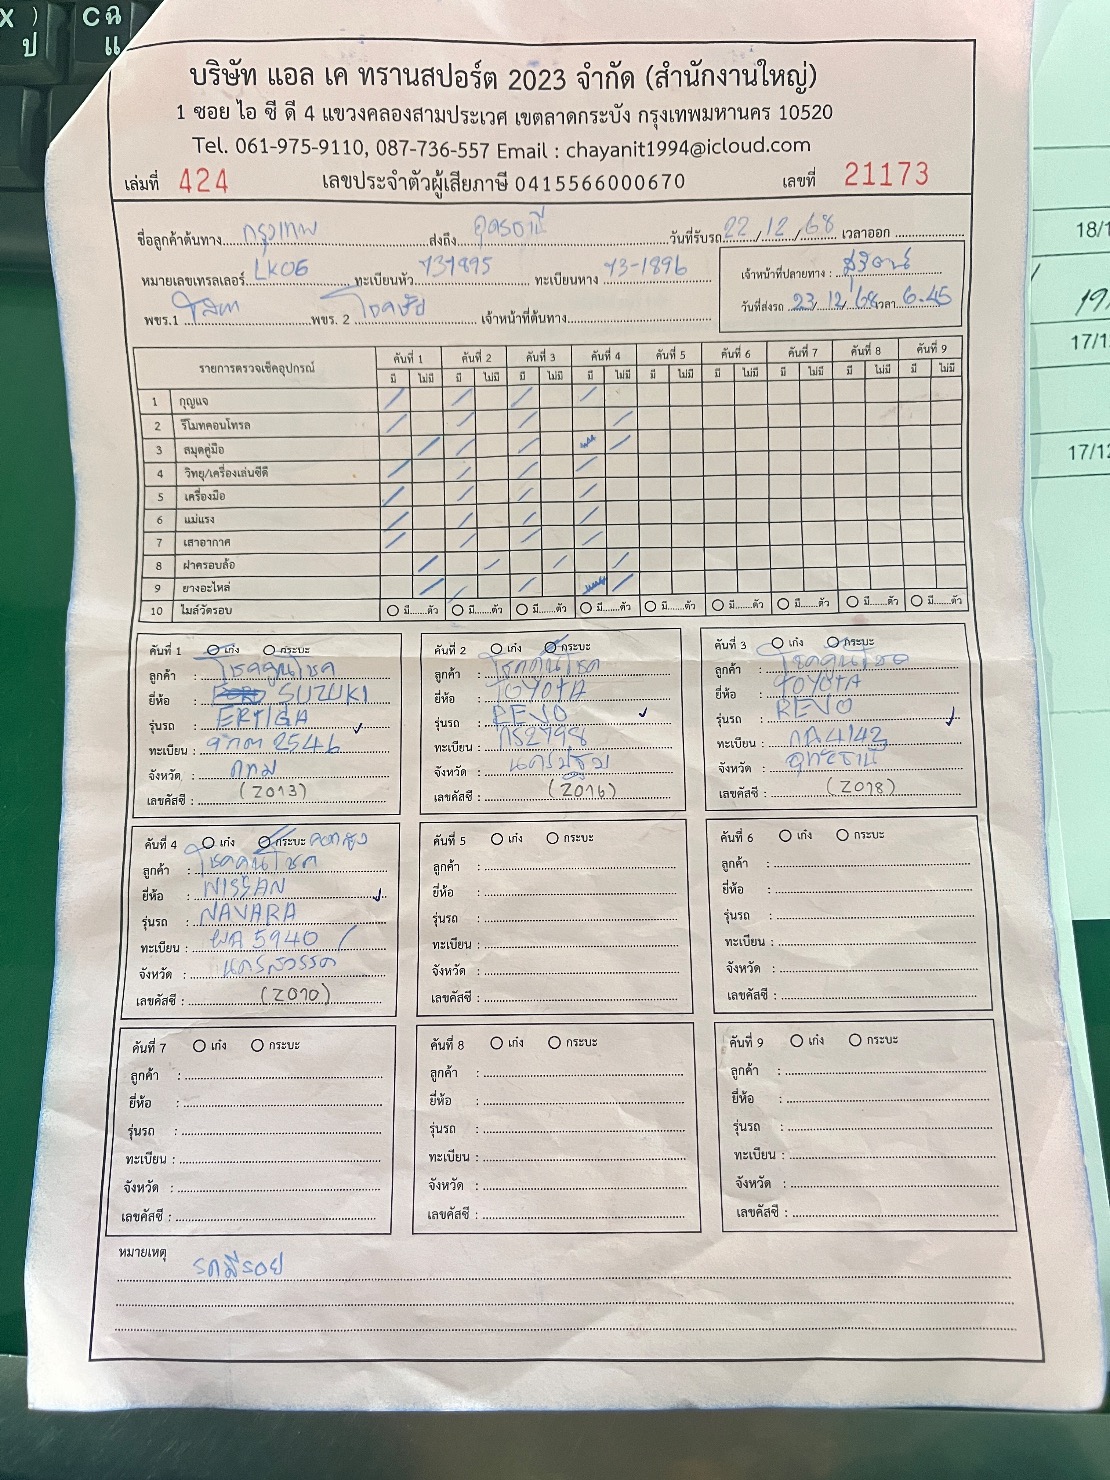 บริษัท แอล เค ทรานสปอร์ต 2023 จำกัด (สำนักงานใหญ่)
1 ซอย ไอ ซี ดี 4 แขวงคลองสามประเวศ เขตลาดกระบัง กรุงเทพมหานคร 10520
Tel. 061-975-9110, 087-736-557 Email : chayanit1994@icloud.com
เล่มที่ 424 เลขประจำตัวผู้เสียภาษี 0415566000670 เลขที่ 21173
ชื่อลูกค้าต้นทาง กรุงเทพ ส่งถึง อุดรธานี วันที่รับรถ 22/12/68 เวลาออก
หมายเลขเทรลเลอร์ LK06 ทะเบียนหัว 731895 ทะเบียนหาง 73-1896
เจ้าหน้าที่ปลายทาง :
พขร.1 พขร. 2 โชคชัย เจ้าหน้าที่ต้นทาง
วันที่ส่งรถ 23/12/68 เวลา 6.45
รายการตรวจเช็คอุปกรณ์ คันที่ 1 คันที่ 2 คันที่ 3 คันที่ 4 คันที่ 5 คันที่ 6 คันที่ 7 คันที่ 8 คันที่ 9
มี ไม่มี มี ไม่มี มี ไม่มี มี ไม่มี มี ไม่มี มี ไม่มี มี ไม่มี มี ไม่มี มี ไม่มี
1 กุญแจ
2 รีโมทคอนโทรล
3 สมุดคู่มือ
4 วิทยุ/เครื่องเล่นซีดี
5 เครื่องมือ
6 แม่แรง
7 เสาอากาศ
8 ฝาครอบล้อ
9 ยางอะไหล่
10 ไมล์วัดรอบ มี......ตัว มี......ตัว มี......ตัว มี......ตัว มี......ตัว มี......ตัว มี......ตัว มี......ตัว มี......ตัว
คันที่ 1 เก๋ง กระบะ
ลูกค้า : โชคคูนโชค
ยี่ห้อ : SUZUKI
รุ่นรถ : ERTIGA
ทะเบียน : 2546
จังหวัด : กทม
เลขคัสซี : (2013)
คันที่ 2 เก๋ง กระบะ
ลูกค้า : โชคคูนโชค
ยี่ห้อ : TOYOTA
รุ่นรถ : REVO
ทะเบียน : 2798
จังหวัด : นครปฐม
เลขคัสซี : (2016)
คันที่ 3 เก๋ง กระบะ
ลูกค้า : โชคคูนโชค
ยี่ห้อ : TOYOTA
รุ่นรถ : REVO
ทะเบียน : กค4142
จังหวัด : อุทัยธานี
เลขคัสซี : (2018)
คันที่ 4 เก๋ง กระบะ
ลูกค้า : โชคคูนโชค
ยี่ห้อ : NISSAN
รุ่นรถ : NAVARA
ทะเบียน : ผค5940
จังหวัด : นครสวรรค์
เลขคัสซี : (2010)
คันที่ 5 เก๋ง กระบะ
ลูกค้า :
ยี่ห้อ :
รุ่นรถ :
ทะเบียน :
จังหวัด :
เลขคัสซี :
คันที่ 6 เก๋ง กระบะ
ลูกค้า :
ยี่ห้อ :
รุ่นรถ :
ทะเบียน :
จังหวัด :
เลขคัสซี :
คันที่ 7 เก๋ง กระบะ
ลูกค้า :
ยี่ห้อ :
รุ่นรถ :
ทะเบียน :
จังหวัด :
เลขคัสซี :
คันที่ 8 เก๋ง กระบะ
ลูกค้า :
ยี่ห้อ :
รุ่นรถ :
ทะเบียน :
จังหวัด :
เลขคัสซี :
คันที่ 9 เก๋ง กระบะ
ลูกค้า :
ยี่ห้อ :
รุ่นรถ :
ทะเบียน :
จังหวัด :
เลขคัสซี :
หมายเหตุ
รถมีรอย